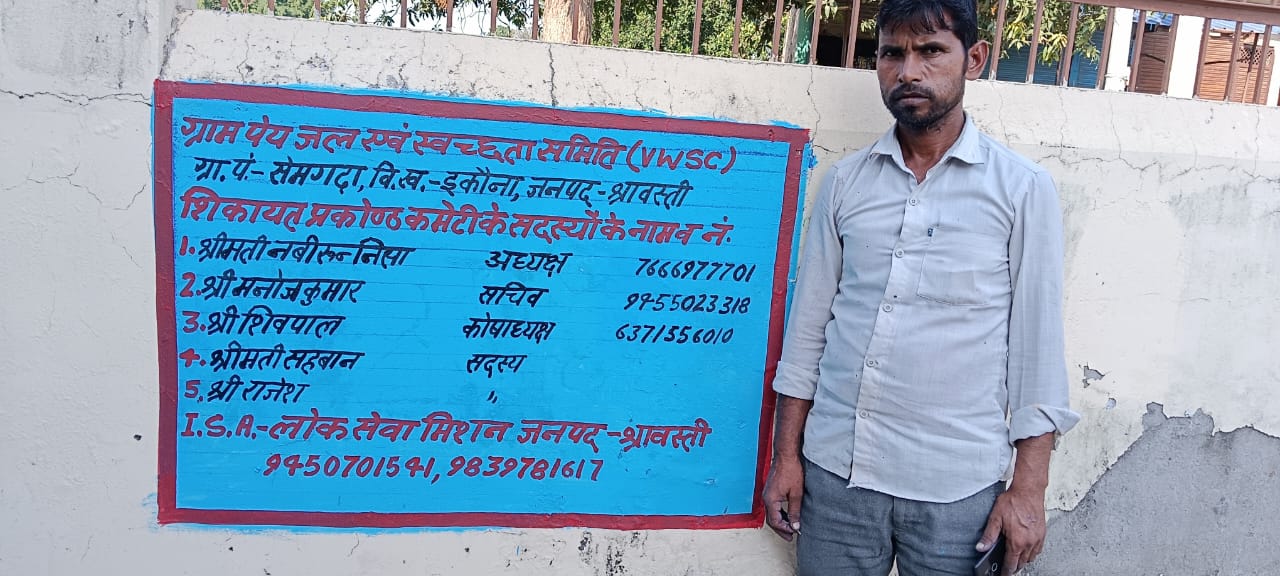 ग्राम पेय जल एवं स्वच्छता समिति (VWSC)
ग्रा.पं.- सेमगढ़ा, वि.ख.-इकौना, जनपद-श्रावस्ती
शिकायत प्रकोष्ठ कमेटी के सदस्यों के नाम व नं.
1. श्रीमती नबीरुन निसा अध्यक्ष 7666977701
2. श्री मनोज कुमार सचिव 9455023318
3. श्री शिवपाल कोषाध्यक्ष 6371556010
4. श्रीमती सहबान सदस्य
5. श्री राजेश "
I.S.A.-लोक सेवा मिशन जनपद-श्रावस्ती
9450701541, 9839781617